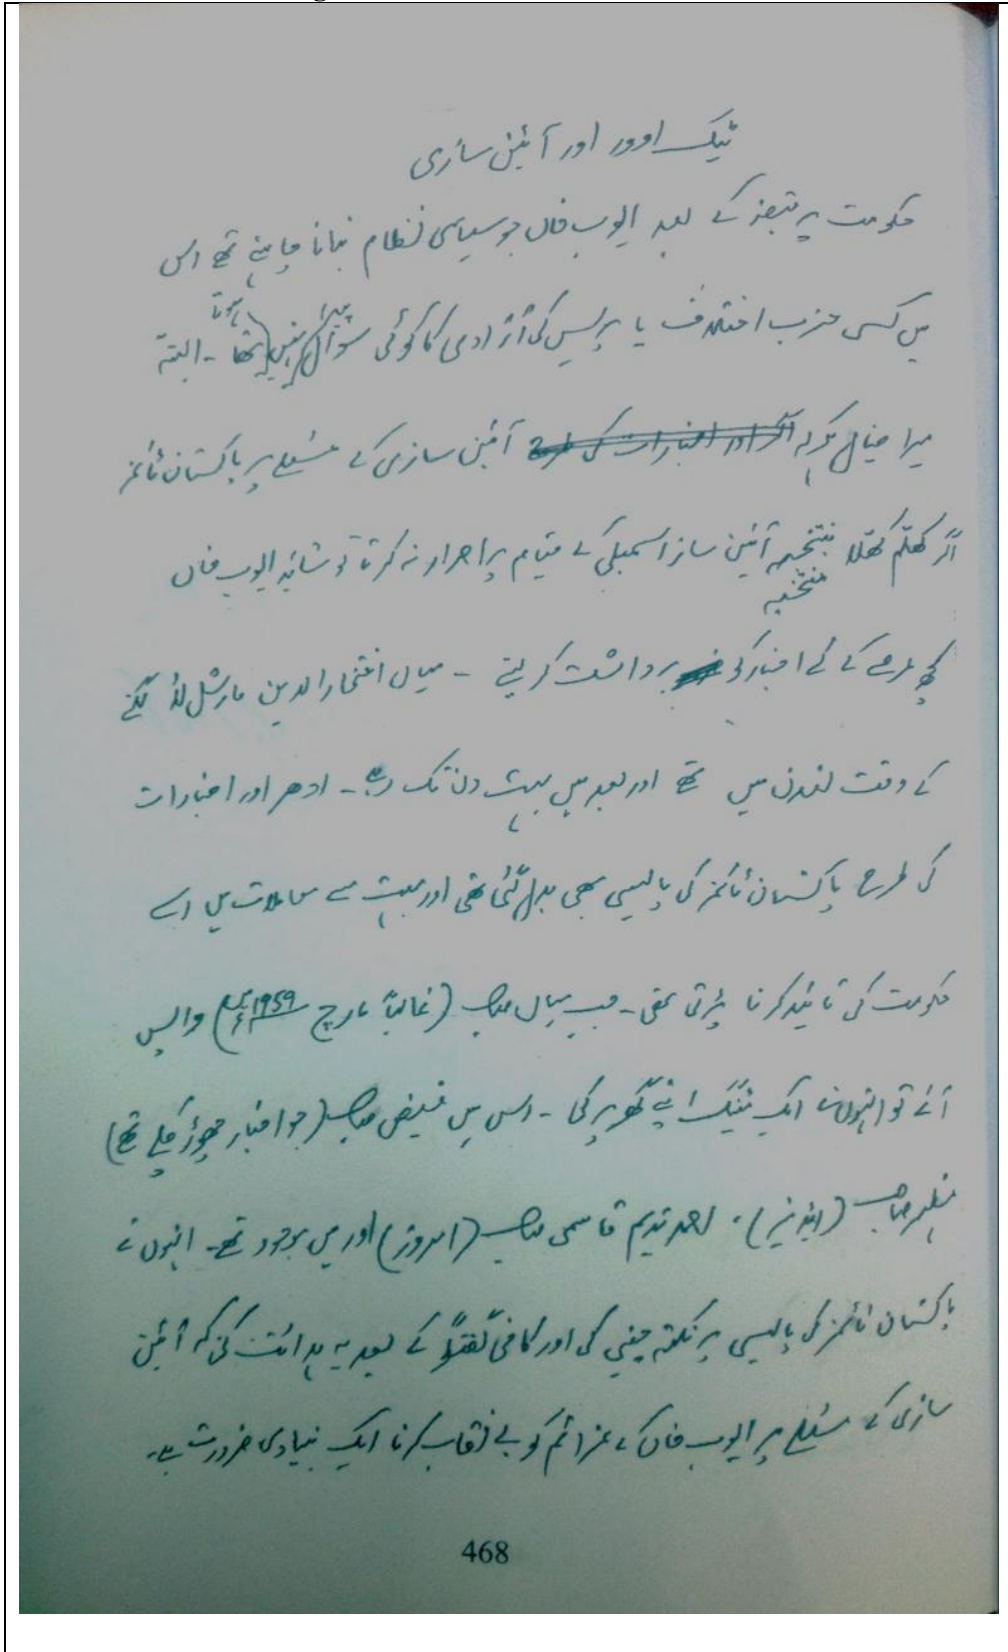 ٹیک اوور اور آئین سازی
حکومت پر قبضہ کے بعد ایوب خاں جو سیاسی نظام بنانا چاہتے تھے اس
میں کسی حزب اختلاف یا پریس کی آزادی کا کوئی سوال پیدا نہیں ہوتا تھا ۔ البتہ
میرا خیال ہے کہ اگر اور اخبارات کی طرح آئین سازی کے مسئلے پر پاکستان ٹائمز
اگر کھلّم کھلّا منتخبہ آئین ساز اسمبلی کے قیام پر اصرار نہ کرتا تو شائد ایوب خاں
منتخبہ
کچھ عرصے کے لئے اخبار کو برداشت کر لیتے ۔ میاں افتخارالدین مارشل لاُ لگنے
کے وقت لندن میں تھے اور بعد میں بہت دن تک رہے ۔ ادھر اور اخبارات
کی طرح پاکستان ٹائمز کی پالیسی بھی بدل گئی تھی اور بہت سے معاملات میں اسے
حکومت کی تائید کرنا پڑتی تھی ۔ جب میاں صاحب (غالباً مارچ 1959ء میں) واپس
آئے تو انہوں نے ایک میٹنگ اپنے گھر پر کی ۔ اس میں فیض صاحب (جو اخبار چھوڑ چکے تھے)
مظہر صاحب ( )، احمد ندیم قاسمی صاحب (امروز) اور میں موجود تھے ۔ انہوں نے
پاکستان ٹائمز کی پالیسی پر نکتہ چینی کی اور کافی گفتگو کے بعد یہ ہدائت کی کہ آئین
سازی کے مسئلے پر ایوب خاں کے عزائم کو بے نقاب کرنا ایک بنیادی ضرورت ہے ۔
468